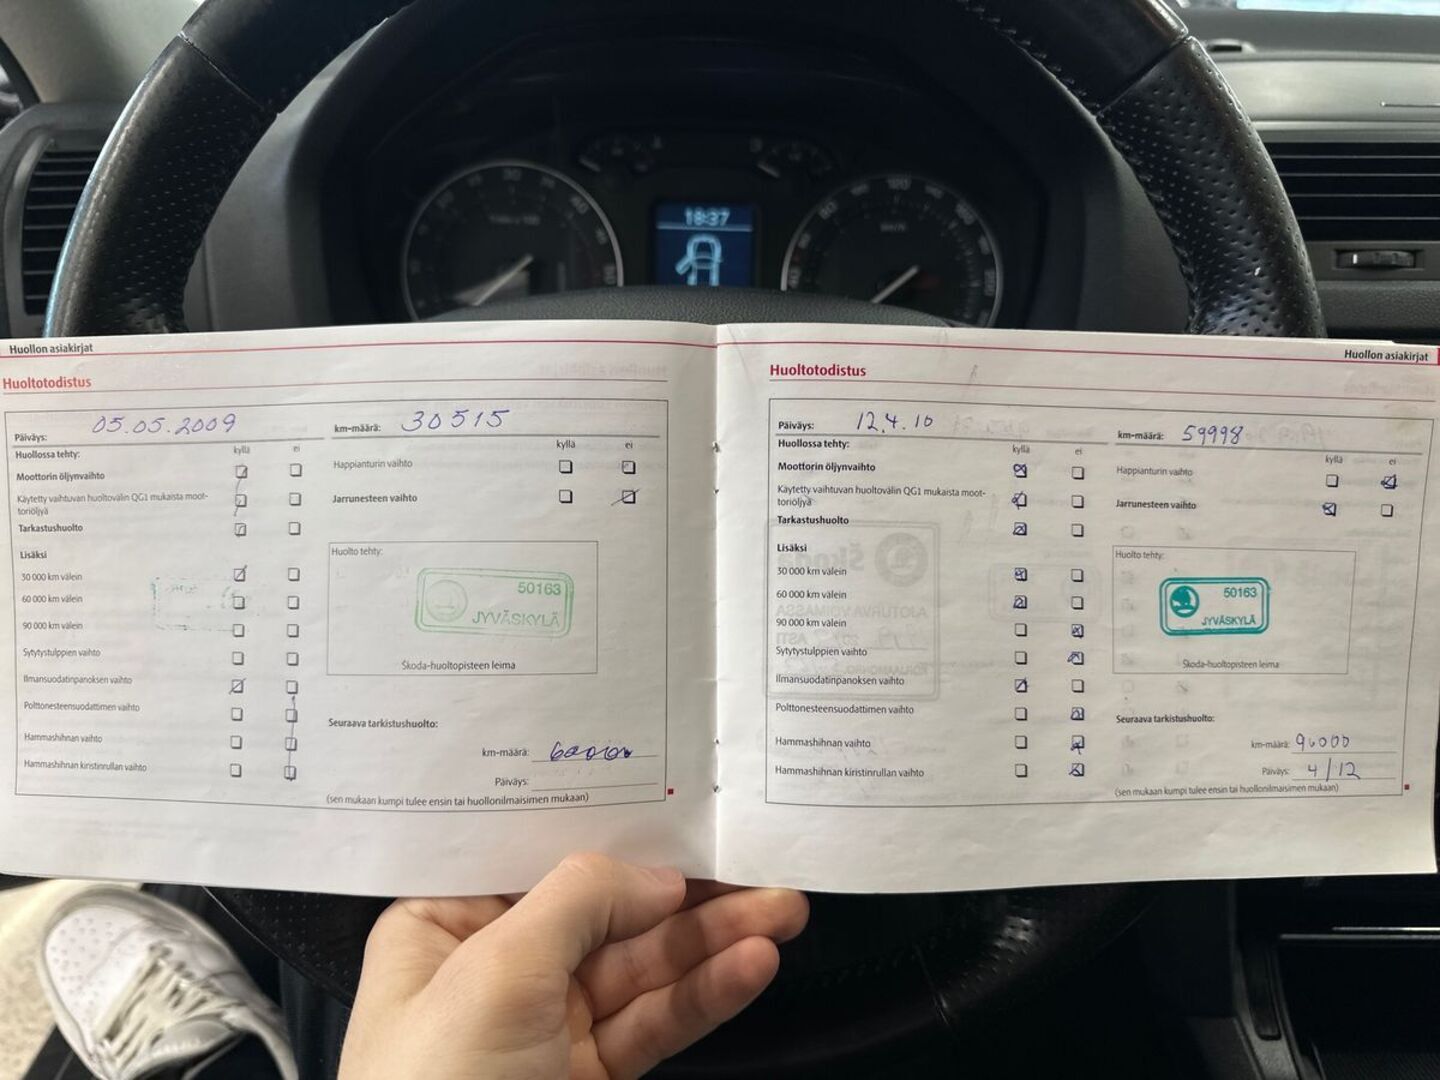 18:37
Huollon asiakirjat
Huoltotodistus
Päiväys: 05.05.2009
km-määrä: 30515
Huollossa tehty:
kyllä ei
Moottorin öljynvaihto
Käytetty vaihtuvan huoltovälin QG1 mukaista moot-
toriöljyä
Tarkastushuolto
Lisäksi
30 000 km välein
60 000 km välein
90 000 km välein
Sytytystulppien vaihto
Ilmansuodatinpanoksen vaihto
Polttonesteensuodattimen vaihto
Hammashihnan vaihto
Hammashihnan kiristinrullan vaihto
kyllä ei
Happianturin vaihto
Jarrunesteen vaihto
Huolto tehty:
50163
JYVÄSKYLÄ
Škoda-huoltopisteen leima
Seuraava tarkistushuolto:
km-määrä: 60000
Päiväys:
(sen mukaan kumpi tulee ensin tai huollonilmaisimen mukaan)
Huollon asiakirjat
Huoltotodistus
Päiväys: 12.4.10
km-määrä: 59998
Huollossa tehty:
kyllä ei
Moottorin öljynvaihto
Käytetty vaihtuvan huoltovälin QG1 mukaista moot-
toriöljyä
Tarkastushuolto
Lisäksi
30 000 km välein
60 000 km välein
90 000 km välein
Sytytystulppien vaihto
Ilmansuodatinpanoksen vaihto
Polttonesteensuodattimen vaihto
Hammashihnan vaihto
Hammashihnan kiristinrullan vaihto
kyllä ei
Happianturin vaihto
Jarrunesteen vaihto
Huolto tehty:
50163
JYVÄSKYLÄ
Škoda-huoltopisteen leima
Seuraava tarkistushuolto:
km-määrä: 90000
Päiväys: 4/12
(sen mukaan kumpi tulee ensin tai huollonilmaisimen mukaan)